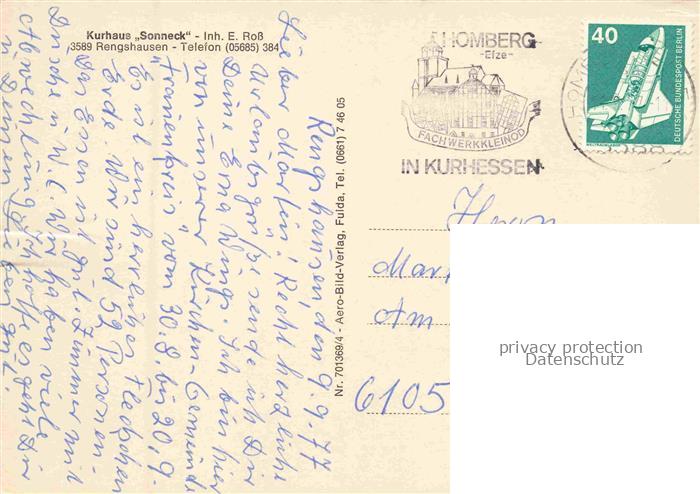 Kurhaus „Sonneck" - Inh. E. Roß
3589 Rengshausen - Telefon (05685) 384
Rengshausen, den 9.9.77
Lieber Martin! Recht herzliche
Urlaubsgrüße sendet Dir
Deine
von unserer Kirchen-Gemeinde
vom 30.8. bis 20.9.
Es ist ein herrliches Fleckchen
Erde. Wir sind 59 Personen.
Das Essen ist gut. Zimmer mit
Dusche u. W.C. Wir haben viele
Abwechlung. Ich hoffe es geht Dir
u. Deinen Lieben gut!
Nr. 701369/4 - Aero-Bild-Verlag, Fulda, Tel. (0661) 7 46 05
HOMBERG
-Efze-
FACHWERKKLEINOD
IN KURHESSEN
40
DEUTSCHE BUNDESPOST BERLIN
WELTRAUMLABOR
Herrn
Mar
Am
6105
privacy protection
Datenschutz